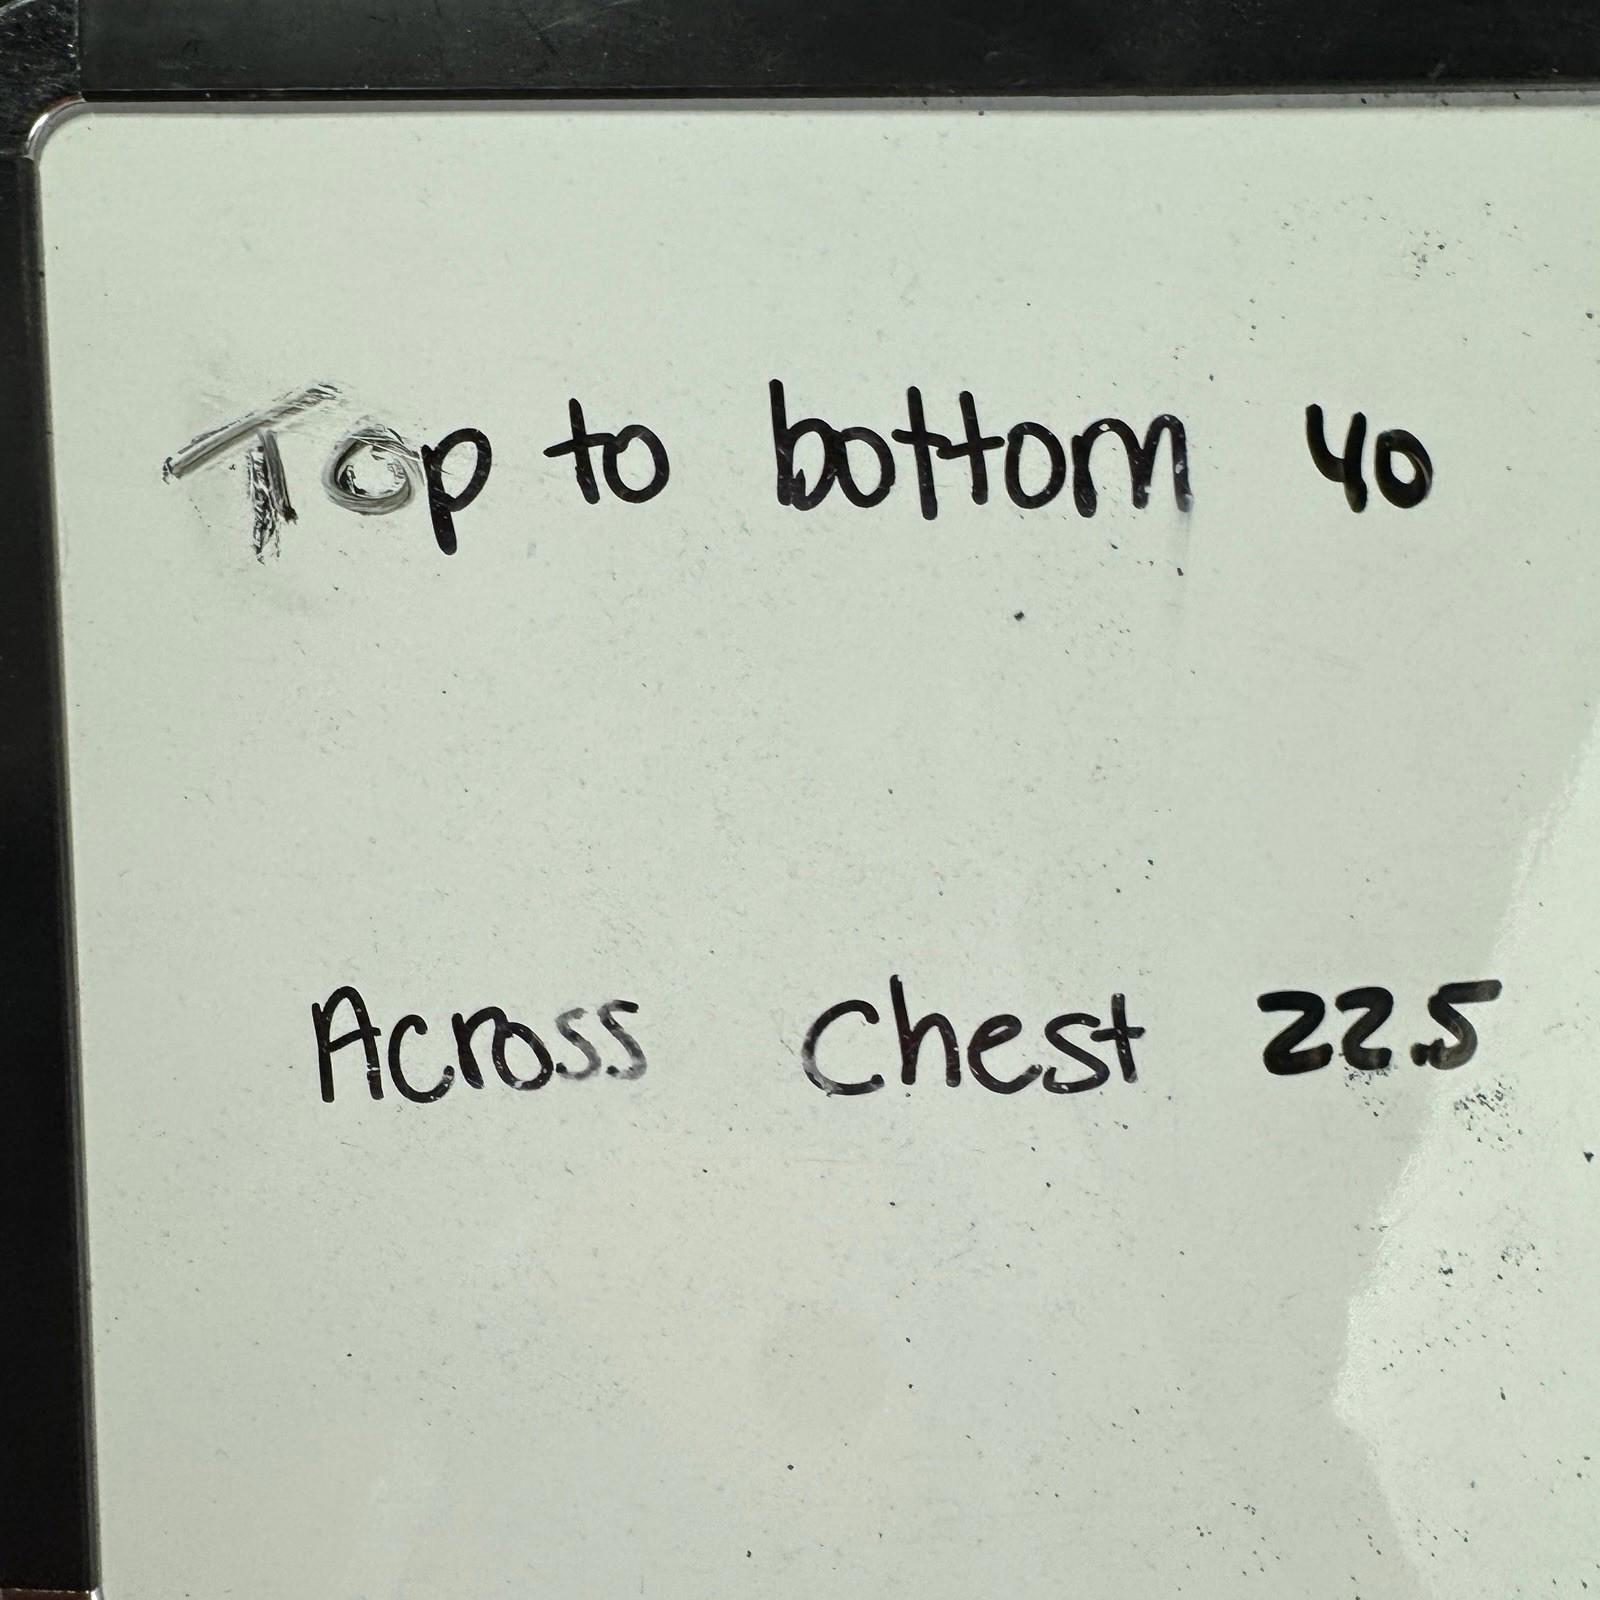 Top to bottom 40
Across Chest 22.5